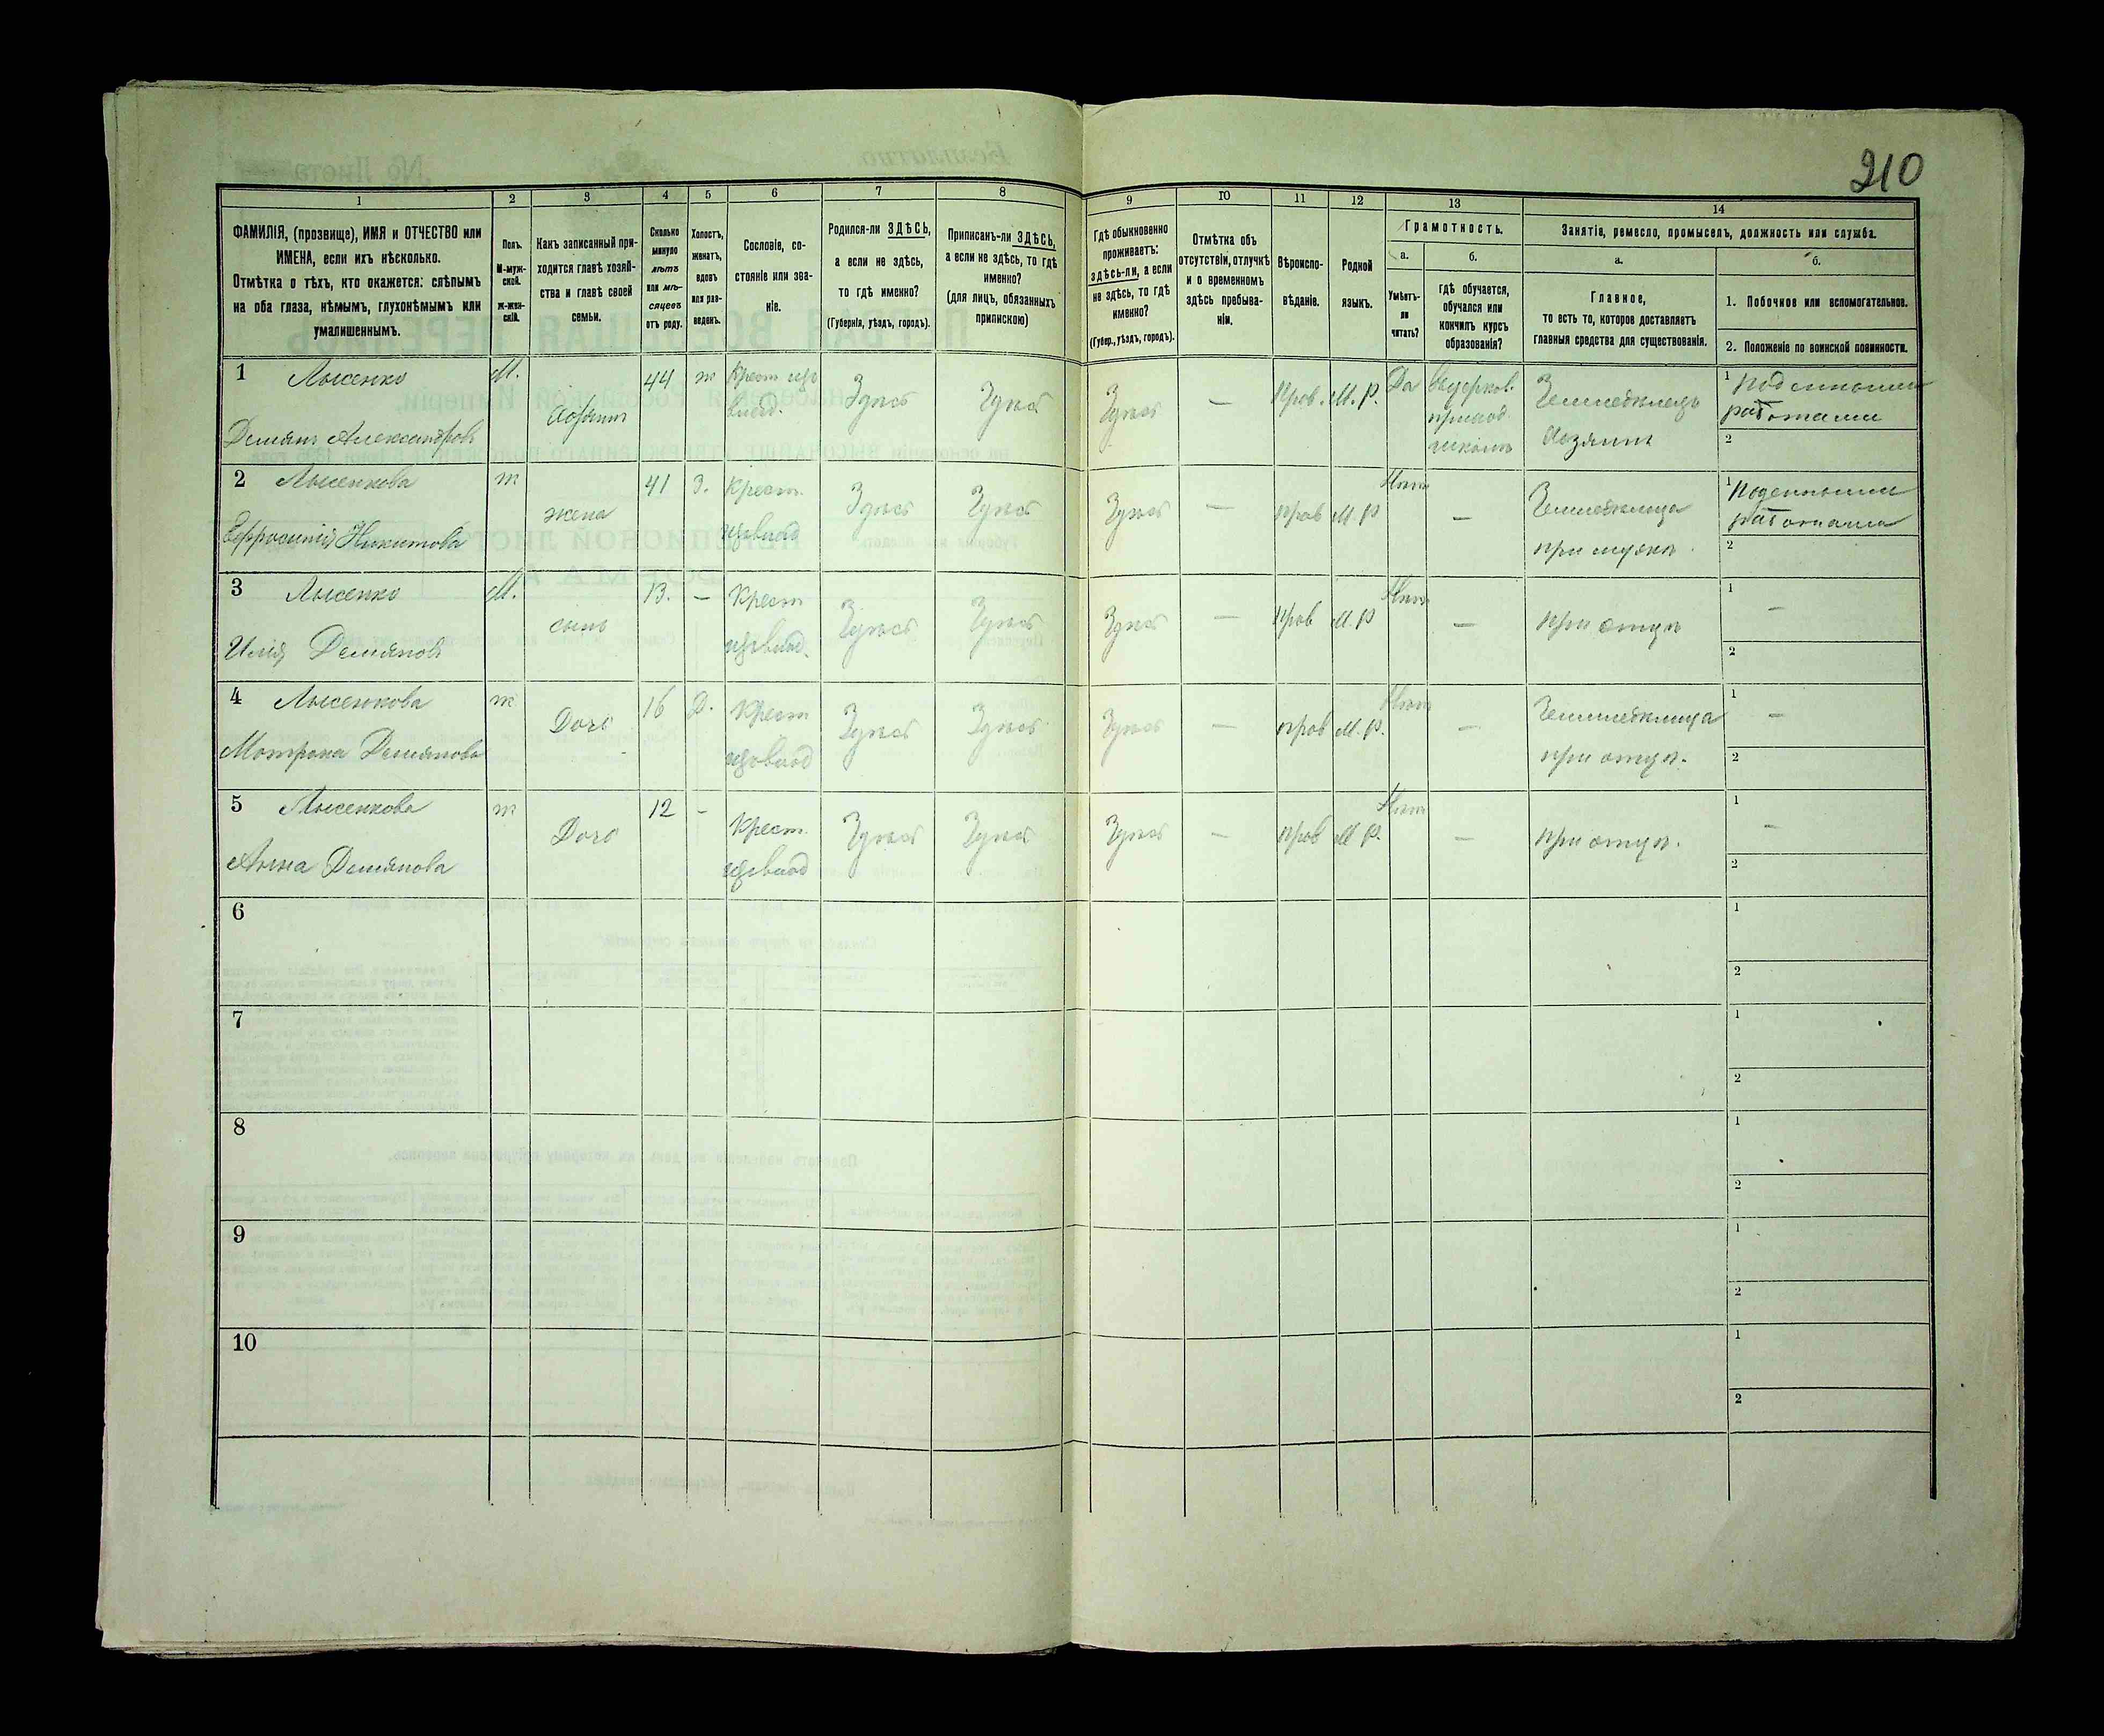 210
1
2
3
4
5
6
7
8
9
10
11
12
13
14
ФАМИЛІЯ, (прозвище), ИМЯ и ОТЧЕСТВО или
ИМЕНА, если ихъ нѣсколько.
Отмѣтка о тѣхъ, кто окажется: слѣпымъ
на оба глаза, нѣмымъ, глухонѣмымъ или
умалишеннымъ.
Полъ.
М-муж-
ской.
Ж-жен-
скій.
Какъ записанный при-
ходится главѣ хозяй-
ства и главѣ своей
семьи.
Сколько
минуло
лѣтъ
или мѣ-
сяцевъ
отъ роду.
Холостъ,
женатъ,
вдовъ
или раз-
веденъ.
Сословіе, со-
стояніе или зва-
ніе.
Родился-ли ЗДѢСЬ,
а если не здѣсь,
то гдѣ именно?
(Губернія, уѣздъ, городъ).
Приписанъ-ли ЗДѢСЬ,
а если не здѣсь, то гдѣ
именно?
(для лицъ, обязанныхъ
припискою)
Гдѣ обыкновенно
проживаетъ:
здѣсь-ли, а если
не здѣсь, то гдѣ
именно?
(Губер., уѣздъ, городъ).
Отмѣтка объ
отсутствіи, отлучкѣ
и о временномъ
здѣсь пребыва-
ніи.
Вѣроиспо-
вѣданіе.
Родной
языкъ.
Грамотность.
а.
Умѣетъ-
ли
читать?
б.
гдѣ обучается,
обучался или
кончилъ курсъ
образованія?
Занятіе, ремесло, промыселъ, должность или служба.
а.
Главное,
то есть то, которое доставляетъ
главныя средства для существованія.
б.
1. Побочное или вспомогательное.
2. Положеніе по воинской повинности.
1 Лысенко
Демянъ Александровъ
М.
44
ж
Крест
Здѣсь
Здѣсь
Здѣсь
—
Прав.
М. Р.
Да
церков.
приход.
Земледѣлецъ
Хозяинъ
1 Поденными
работами
2
2 Лысенкова
Ефросинія Никитова
ж
жена
41
З.
Крест.
Здѣсь
Здѣсь
Здѣсь
—
прав
М. Р
Нѣтъ
—
Земледѣлица
при мужѣ.
1 Поденными
работами
2
3 Лысенко
Илія Демяновъ
М.
сынъ
13.
—
Крест
Здѣсь
Здѣсь
Здѣсь
—
прав
М. Р
Нѣтъ
—
при отцѣ
1 —
2
4 Лысенкова
Мотрона Демянова
ж
Дочь
16
Д.
Крест
Здѣсь
Здѣсь
Здѣсь
—
прав
М. Р.
Нѣтъ
—
Земледѣлица
при отцѣ.
1 —
2
5 Лысенкова
Анна Демянова
ж
Дочь
12
-
Крест.
Здѣсь
Здѣсь
Здѣсь
—
прав
М. Р.
Нѣтъ
—
при отцѣ.
1 —
2
6
1
2
7
1
2
8
1
2
9
1
2
10
1
2